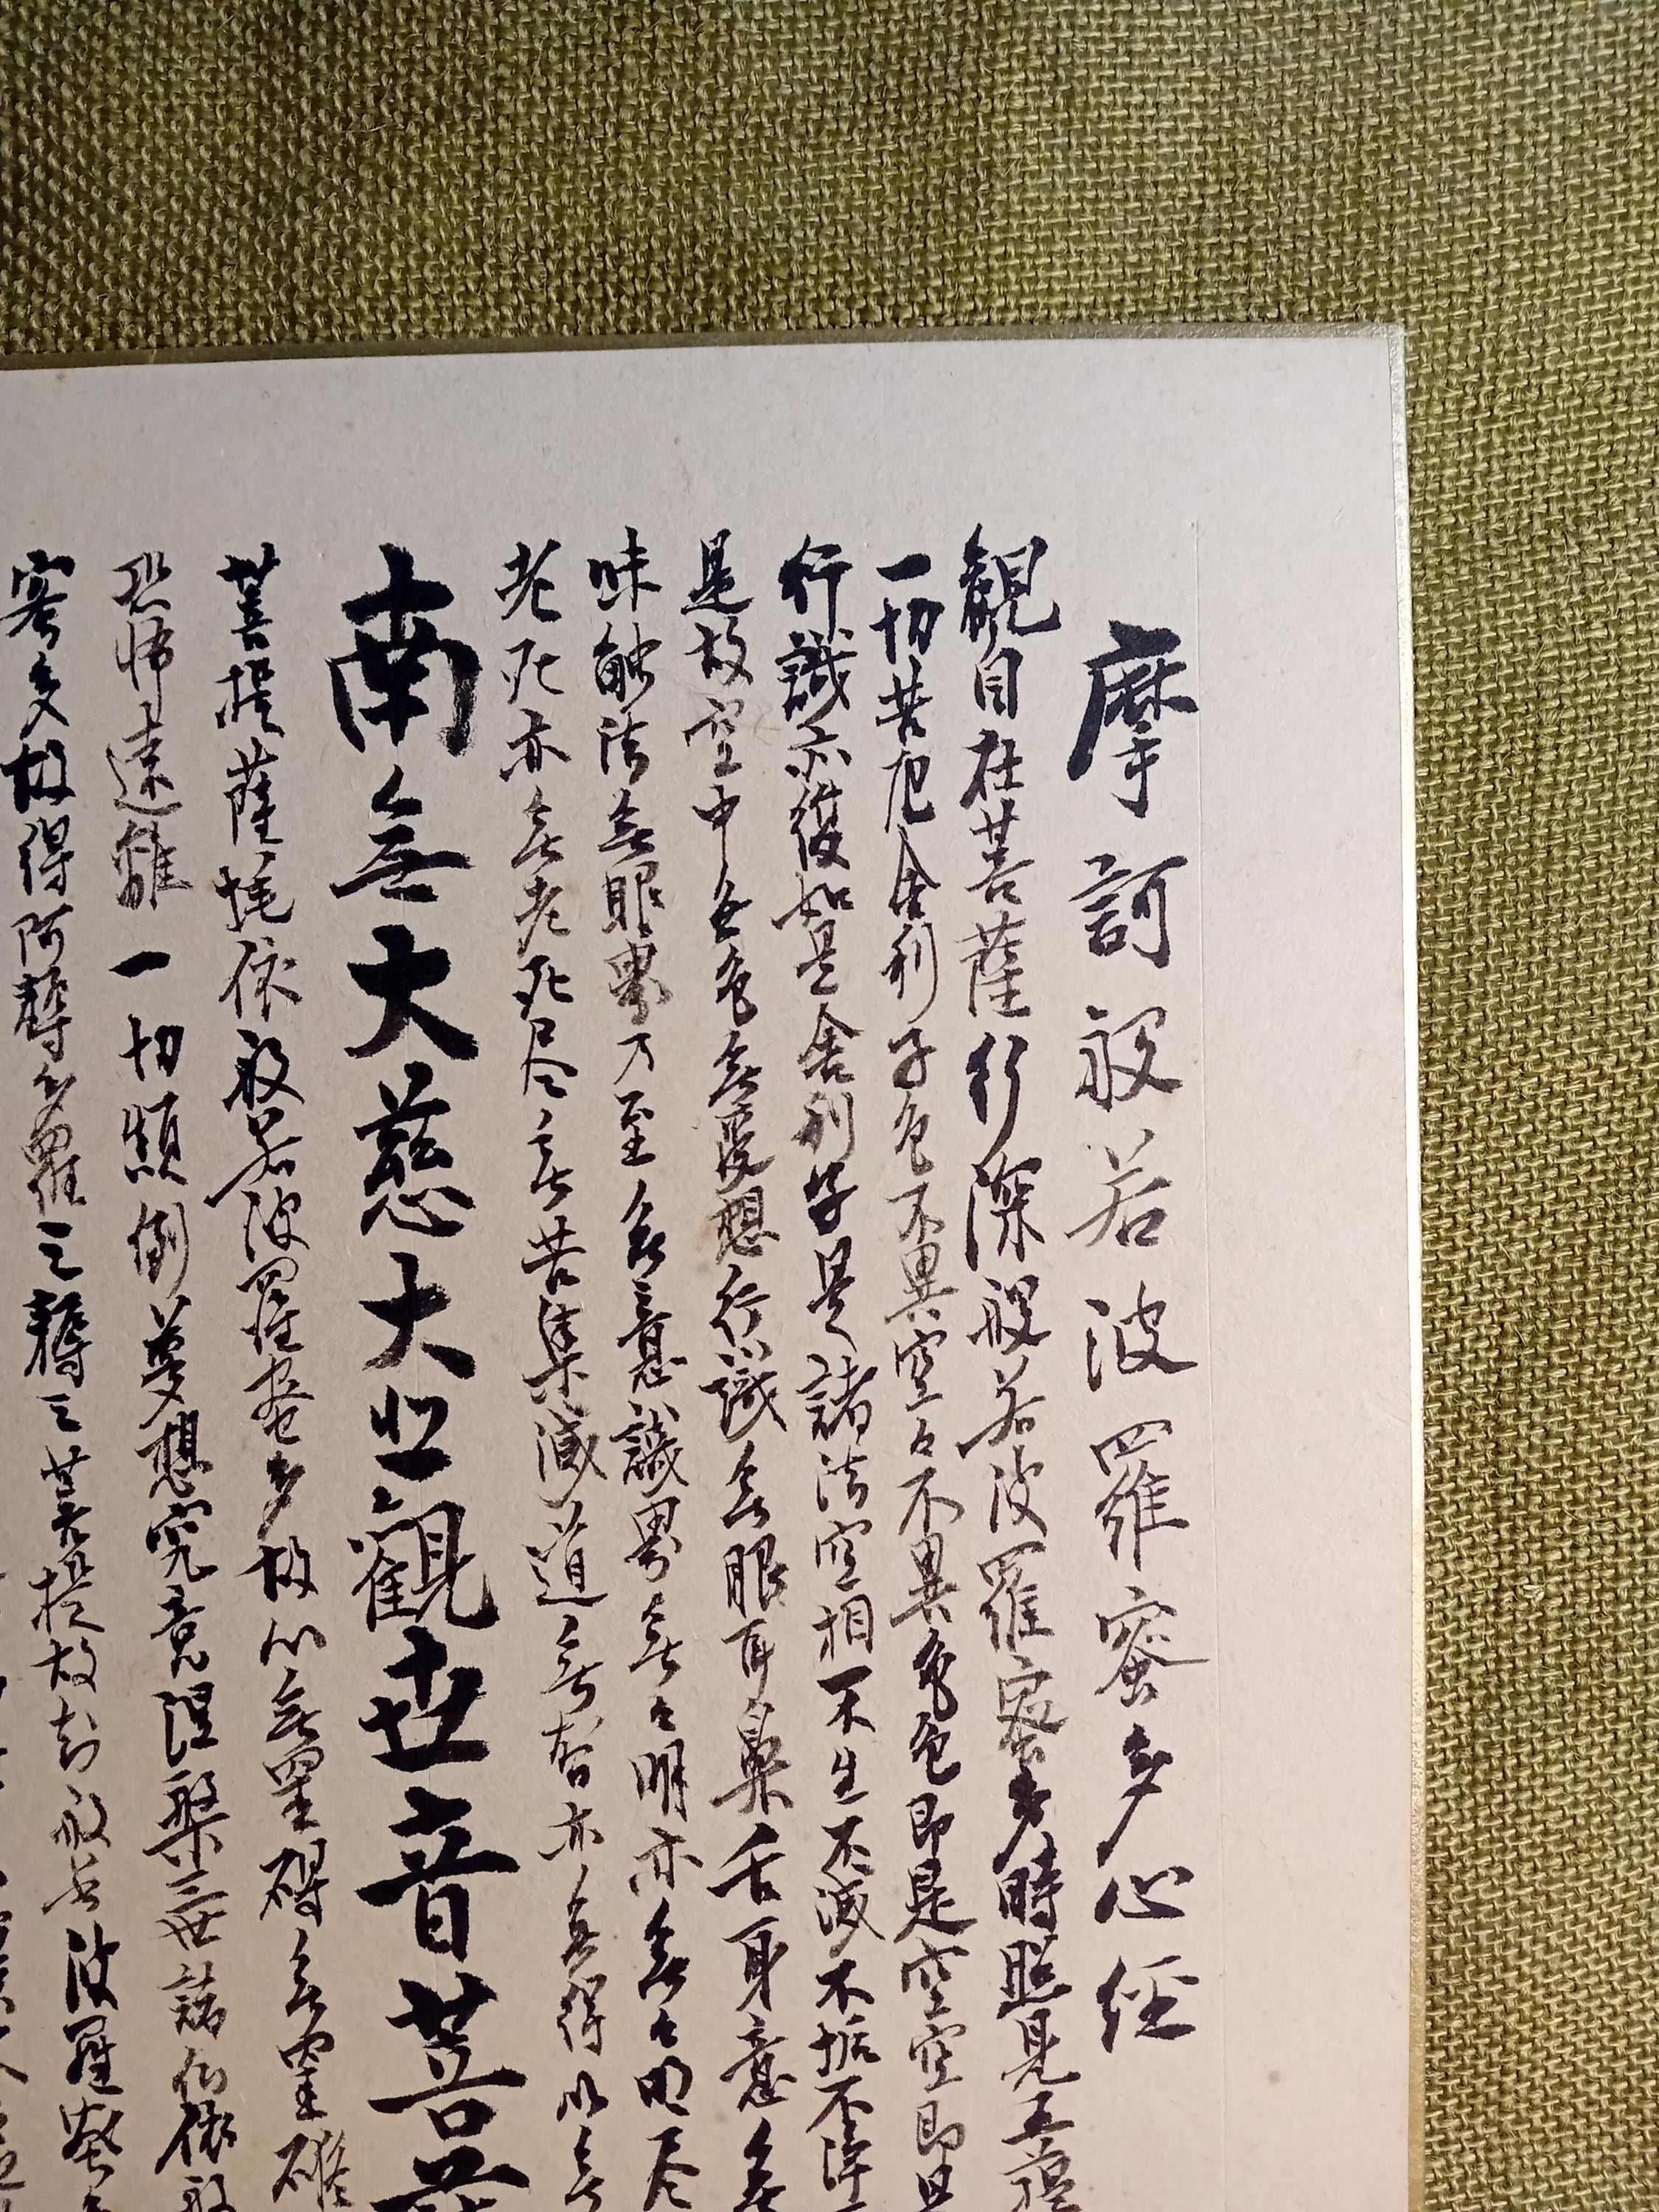 摩訶般若波羅蜜多心経
観自在菩薩行深般若波羅密多時照見五蘊
一切苦厄舎利子色不異空々不異色色即是空空即是
行識亦復如是舎利子是諸法空相不生不滅不垢不浄
是故空中無色無受想行識無眼耳鼻舌身意無
味触法無眼界乃至無意識界無々明亦無々明尽
老死亦無老死尽無苦集滅道無智亦無得以無
南無大慈大悲観世音菩薩
菩提薩埵依般若波羅蜜多故心無罣礙無罣礙
恐怖遠離一切顛倒夢想究竟涅槃三世諸仏依般
密多故得阿耨多羅三藐三菩提故知般若波羅蜜